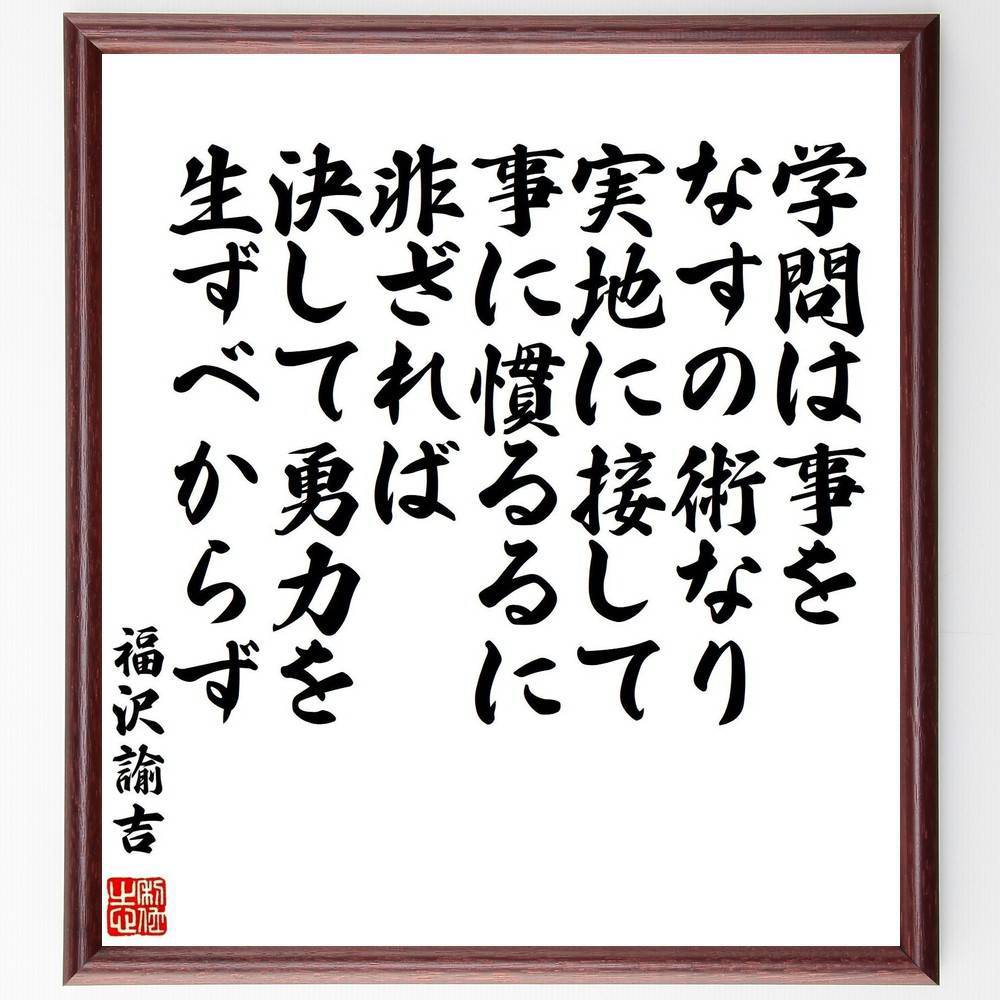 学問は事を
なすの術なり
実地に接して
事に慣るるに
非ざれば
決して勇力を
生ずべからず
福沢諭吉